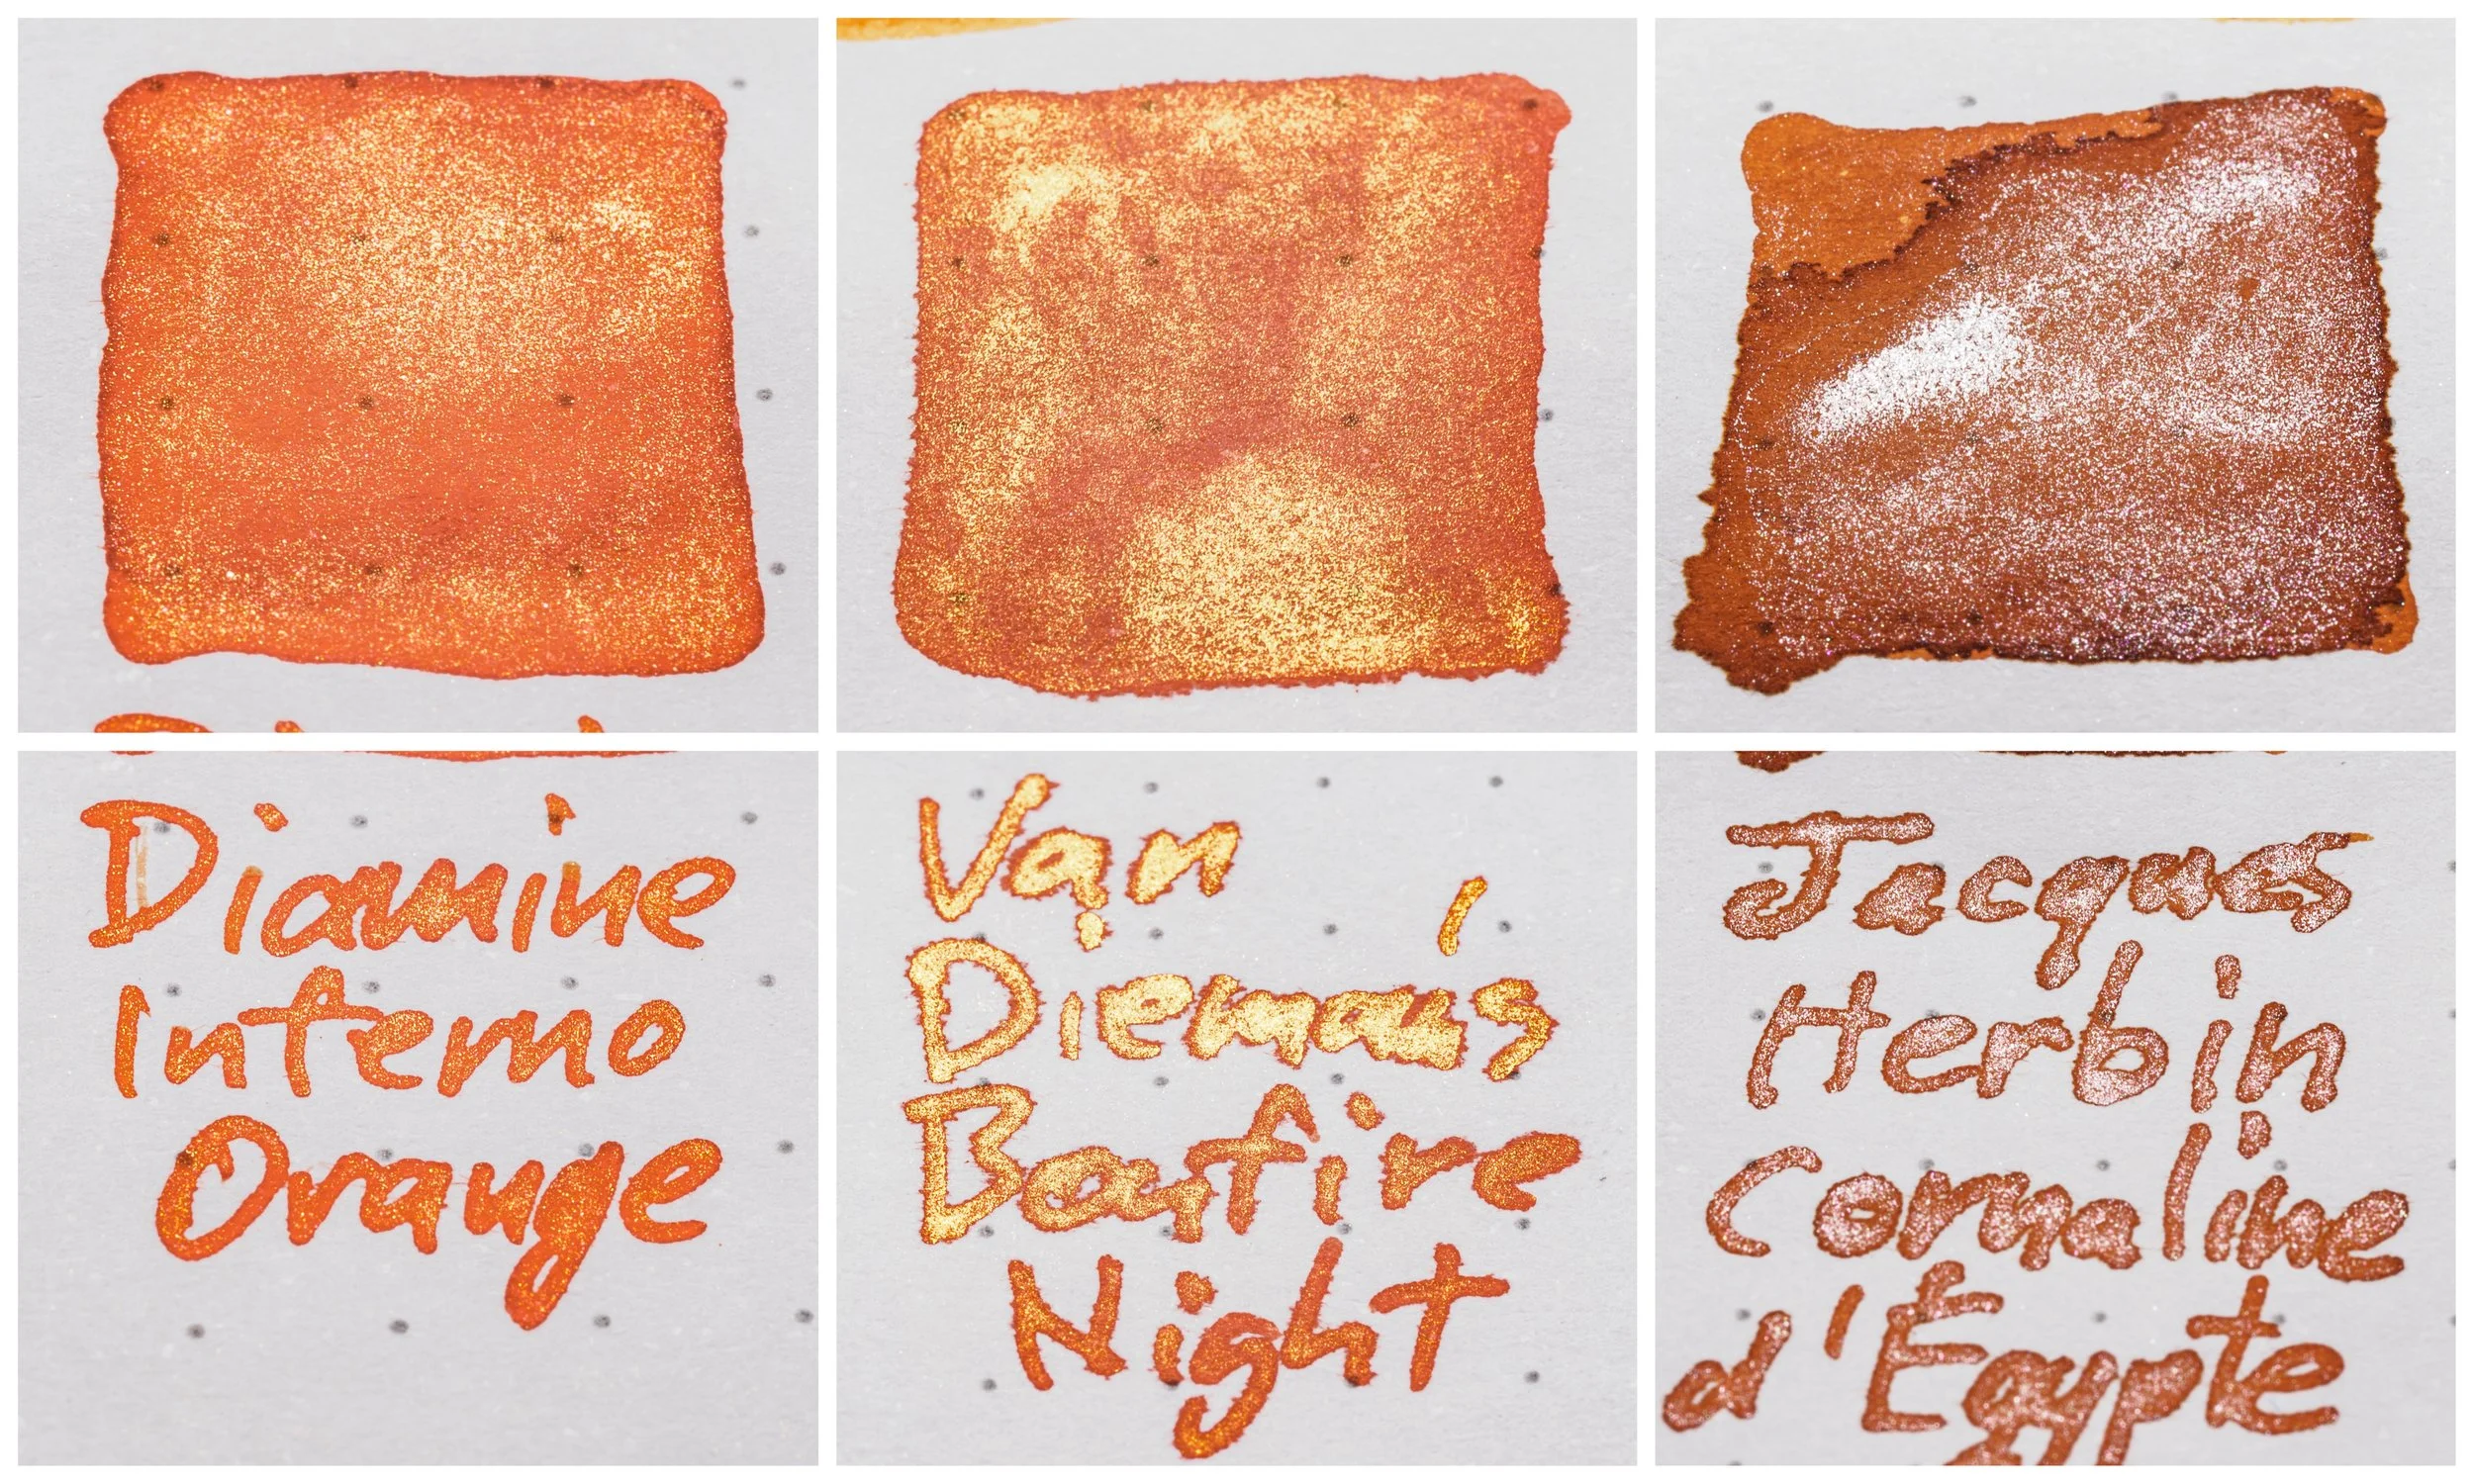 Diamine
Inferno
Orange
Van
Dieman's
Bonfire
Night
Jacques
Herbin
Cornaline
d'Égypte